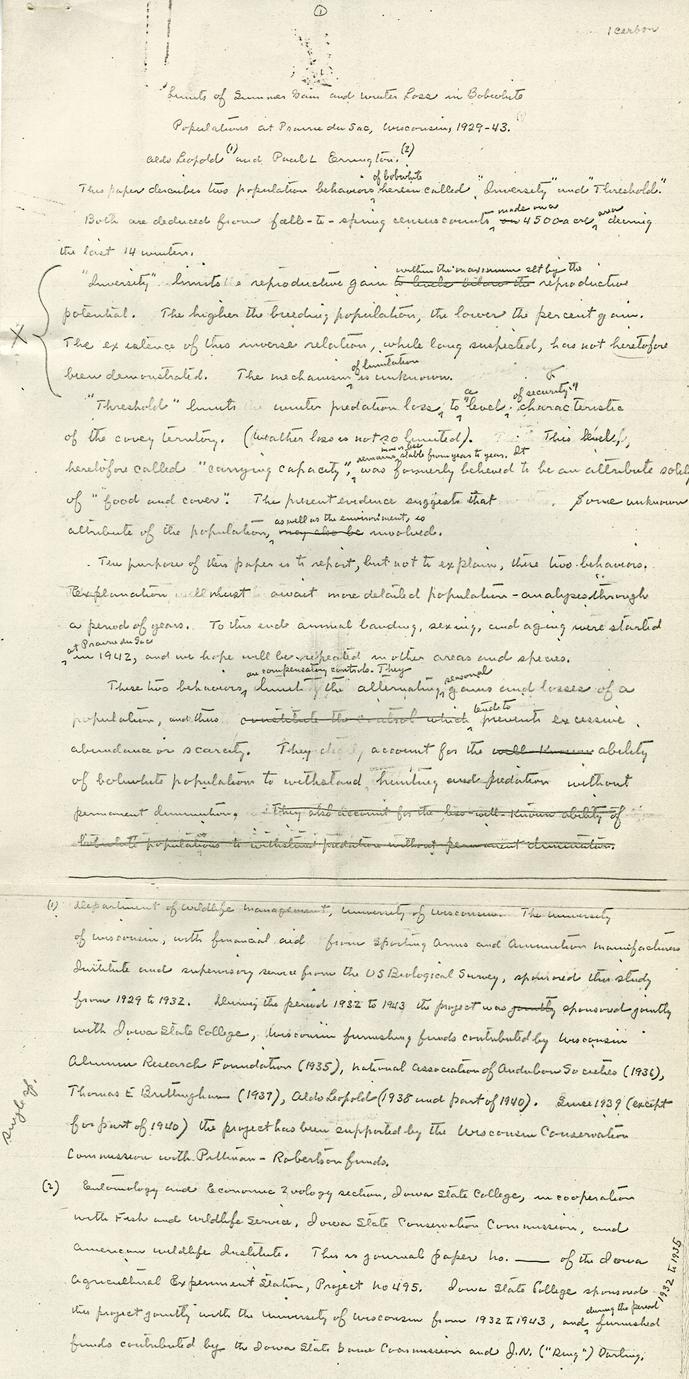 ①
1 carbon
"Limits of Summer Gain and Winter Loss in Bobwhite
Populations at Prairie du Sac, Wisconsin, 1929-43.
Aldo Leopold (1) and Paul L Errington. (2)
of bobwhite
This paper describes two population behaviors herein called "Inversity" and "Threshold."
made on a area
Both are deduced from fall-to-spring census counts on 4500 acre during
the last 14 winters.
within the maximum set by the
"Inversity" limits reproductive gain to levels below the reproductive
X potential. The higher the breeding population, the lower the percent gain.
The existence of this inverse relation, while long suspected, has not heretofore
of limitation
been demonstrated. The mechanism is unknown.
a of security"
"Threshold" limits winter predation loss to "level characteristic
of the covey territory. (Weather loss is not so limited). This level,
more or less
remains stable from year to year. It
heretofore called "carrying capacity", was formerly believed to be an attribute solely
of "food and cover". The present evidence suggests that some unknown
as well as the environment, is
attribute of the population, may also be involved.
The purpose of this paper is to report, but not to explain, these two behaviors.
Explanation must await more detailed population-analyses through
a period of years. To this end annual banding, sexing, and aging were started
at Prairie du Sac
in 1942, and we hope will be repeated in other areas and species.
on compensatory controls. They seasonal
These two behaviors, limit the alternating gains and losses of a
tends to
population, and thus constitute the control which prevents excessive
abundance or scarcity. They account for the well-known ability
of bobwhite population to withstand hunting and predation without
permanent diminution. They also account for the less well-known ability of
bobwhite populations to withstand predation without permanent diminution.
(1) Department of Wildlife Management, University of Wisconsin. The University
of Wisconsin, with financial aid from Sporting Arms and Ammunition Manufacturers
Institute and supervisory service from the US Biological Survey, sponsored this study
from 1929 to 1932. During the period 1932 to 1943 the project was jointly sponsored jointly
with Iowa State College, Wisconsin furnishing funds contributed by Wisconsin
Alumni Research Foundation (1935), National Association of Audubon Societies (1936),
Thomas E Brittingham (1937), Aldo Leopold (1938 and part of 1940). Since 1939 (except
for part of 1940) the project has been supported by the Wisconsin Conservation
Commission with Pittman-Robertson funds.
single sp.
(2) Entomology and Economic Zoology section, Iowa State College, in cooperation
with Fish and Wildlife Service, Iowa State Conservation Commission, and
American Wildlife Institute. This is journal paper no. ____ of the Iowa
Agricultural Experiment Station, Project no 495. Iowa State College sponsored
during the period 1932 to 1935
this project jointly with the University of Wisconsin from 1932 to 1943, and furnished
funds contributed by the Iowa State Game Commission and J.N. ("Ding") Darling.